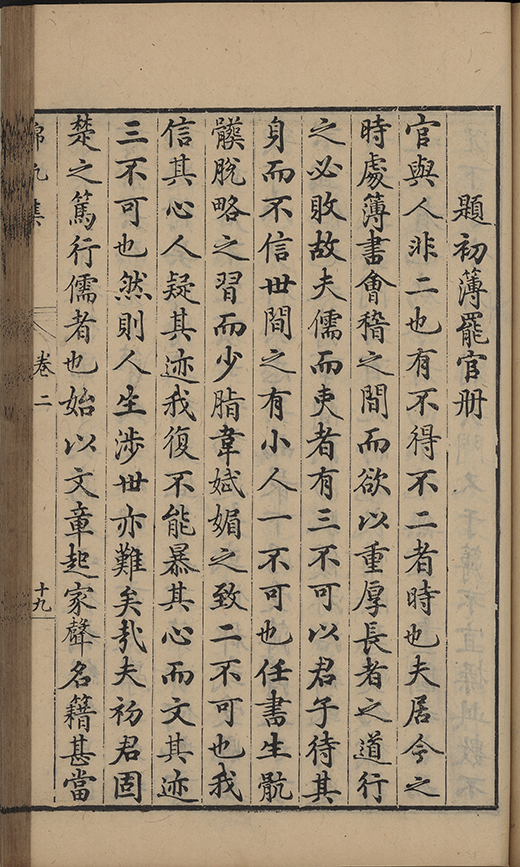 題初薄罷官册
官與人非二也有不得不二者時也夫居今之
時處薄書會稽之間而欲以重厚長者之道行
之必敗故夫儒而吏者有三不可以君子待其
身而不信世間之有小人一不可也任書生骯
髒脫略之習而少脂韋娬媚之致二不可也我
信其心人疑其迹我復不能暴其心而文其迹
三不可也然則人生涉世亦難矣哉夫初君固
楚之篤行儒者也始以文章起家聲名籍甚當
卷二
十九